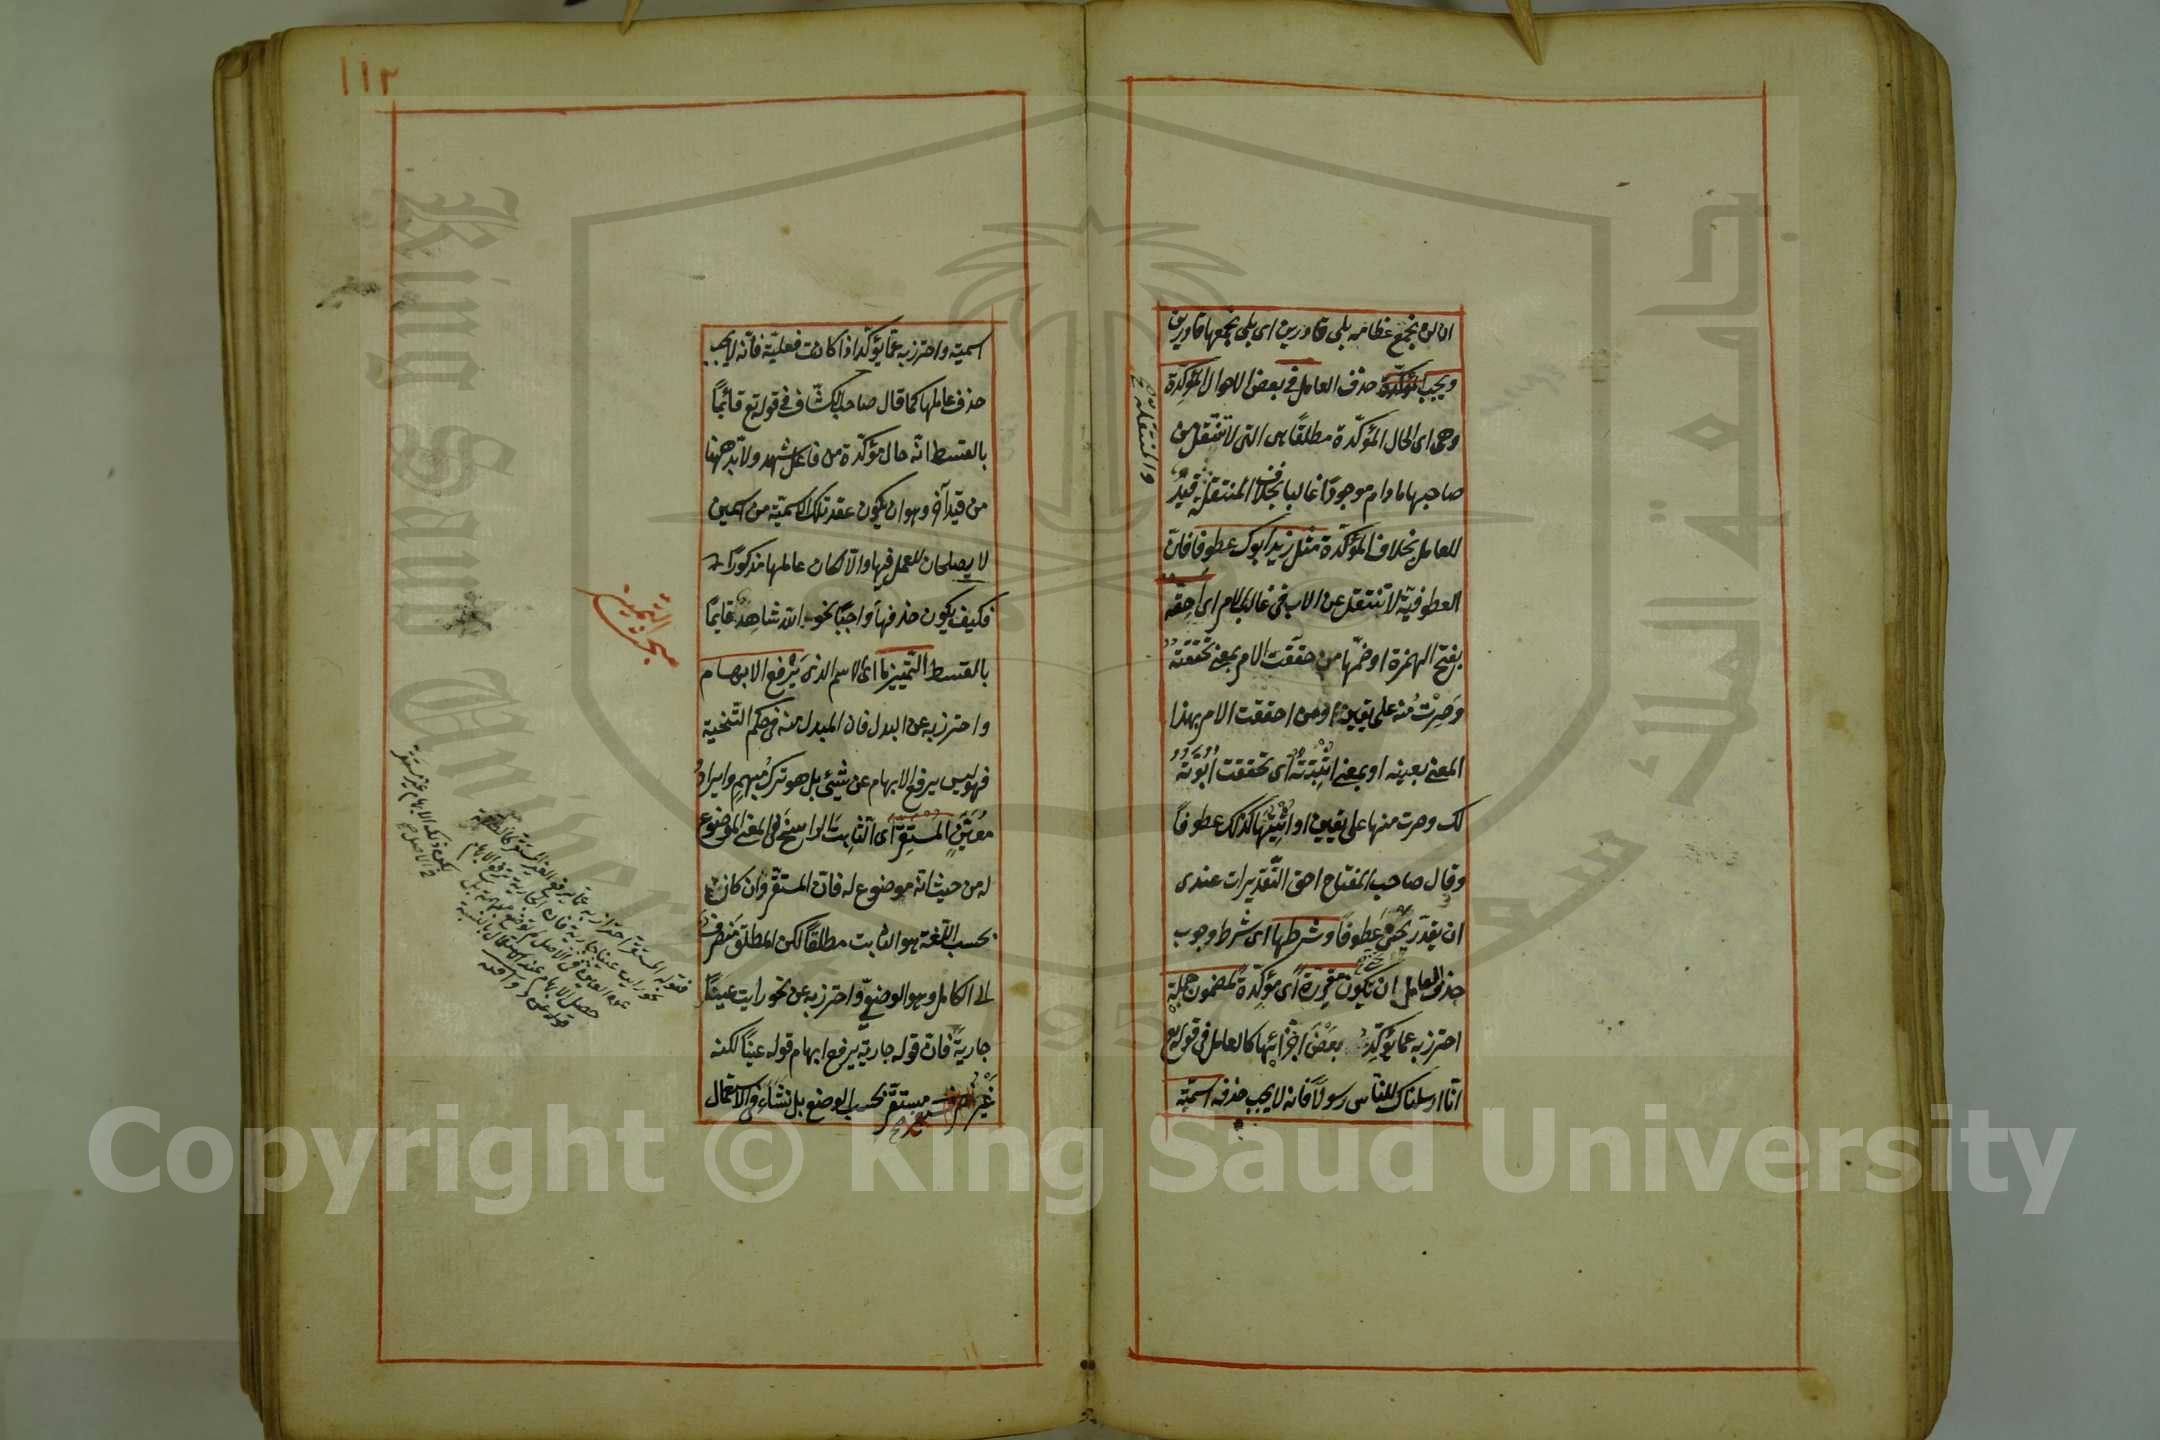 ان لن نجمع عظامه بلى قادرين اى بلى نجمعها قادرين
ويجب المؤكدة حذف العامل في بعض الاحوال المؤكدة
وهي اى الحال المؤكدة مطلقا هى التى لا تنتقل من
صاحبها ما دام موجودا غالبا بخلاف المنتقلة قيد
للعامل بخلاف المؤكدة مثل زيد ابوك عطوفا فان
العطوفية لا تنتقل عن الاب فى غالب الامر اى احقه
بفتح الهمزة او ضمها من حققت الامر بمعنى تحققته
وصرت منه على يقين او من احققت الامر بهذا
المعنى بعينه او بمعنى اثبتته اى تحققت ابوته
لك وصرت منها على يقين او اثبتها كذلك عطوفا
وقال صاحب المفتاح احق التقديرات عندى
ان يقدر يحنى عطوفا وشرطها اى شرط وجوب
حذف العامل ان تكون مقررة اى مؤكدة لمضمون جملة
احترز به عما يؤكد بعض اجزائها كالعامل فى قوله تع
انا ارسلناك للناس رسولا فانه لا يجب حذفه اسمية
والمنتقلة
١١٢
اسمية واحترز به عما يؤكد اذا كانت فعلية فانه لا يجب
حذف عاملها كما قال صاحب الكشاف في قوله تع قائما
بالقسط انه حال مؤكدة من فاعل شهد ولا بد ههنا
من قيد آخر وهو ان يكون عقد تلك الاسمية من اسمين
لا يصلحان للعمل فيها والا لكان عاملها مذكورا
فكيف يكون حذفها واجبا نحو الله شاهد قايما
بالقسط التمييز ما اى الاسم الذى يرفع الابهام
واحترز به عن البدل فان المبدل منه فى حكم التنحية
فهو ليس يرفع الابهام عن شيئ بل هو ترك مبهم وايراد
معين المستقر اى الثابت الراسخ فى المعنى الموضوع
له من حيث انه موضوع له فان المستقر وان كان
بحسب اللغة هو الثابت مطلقا لكن المطلق منصرف
الى الكامل وهو الوضعى واحترز به عن نحو رايت عينا
جارية فان قوله جارية يرفع ابهام قوله عينا لكنه
غير مستقر بحسب الوضع بل نشاء فى الاستعمال
مبحث التمييز
Copyright © King Saud University
King Saud University
جامعة الملك سعود
1957